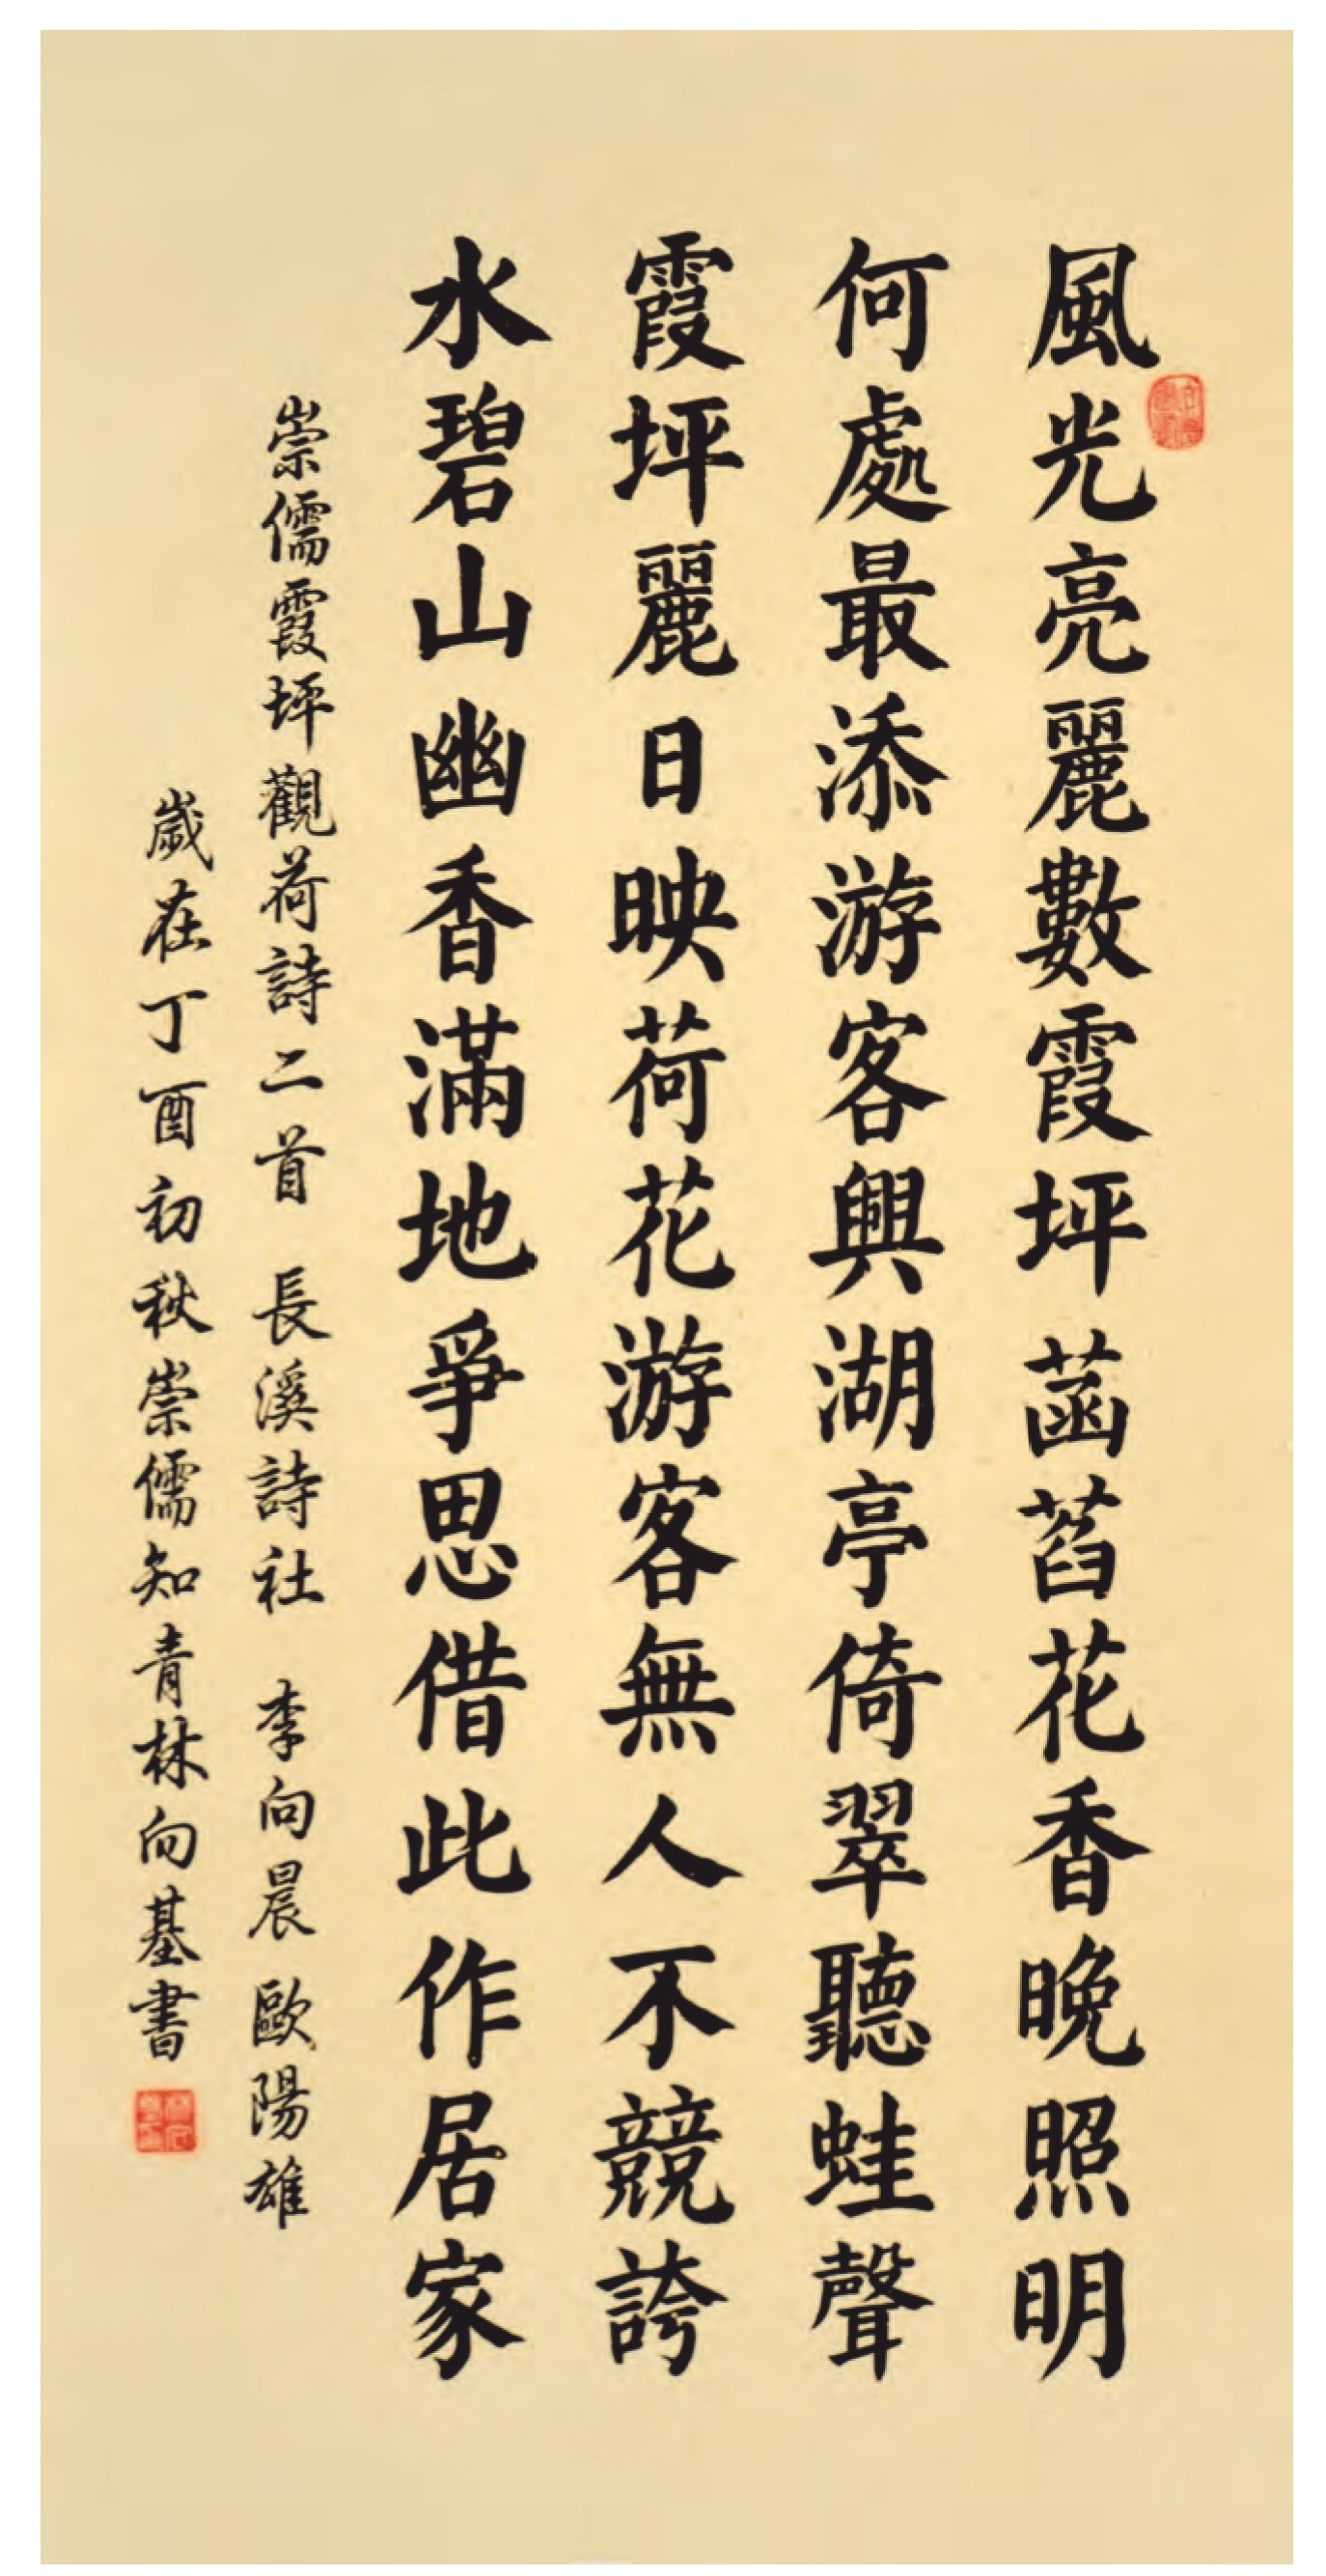 風光亮麗數霞坪菡萏花香晚照明
何處最添游客興湖亭倚翠聽蛙聲
霞坪麗日映荷花游客無人不競誇
水碧山幽香滿地爭思借此作居家
崇儒霞坪觀荷詩二首 長溪詩社 李向晨 歐陽雄
歲在丁酉初秋崇儒知青林向基書